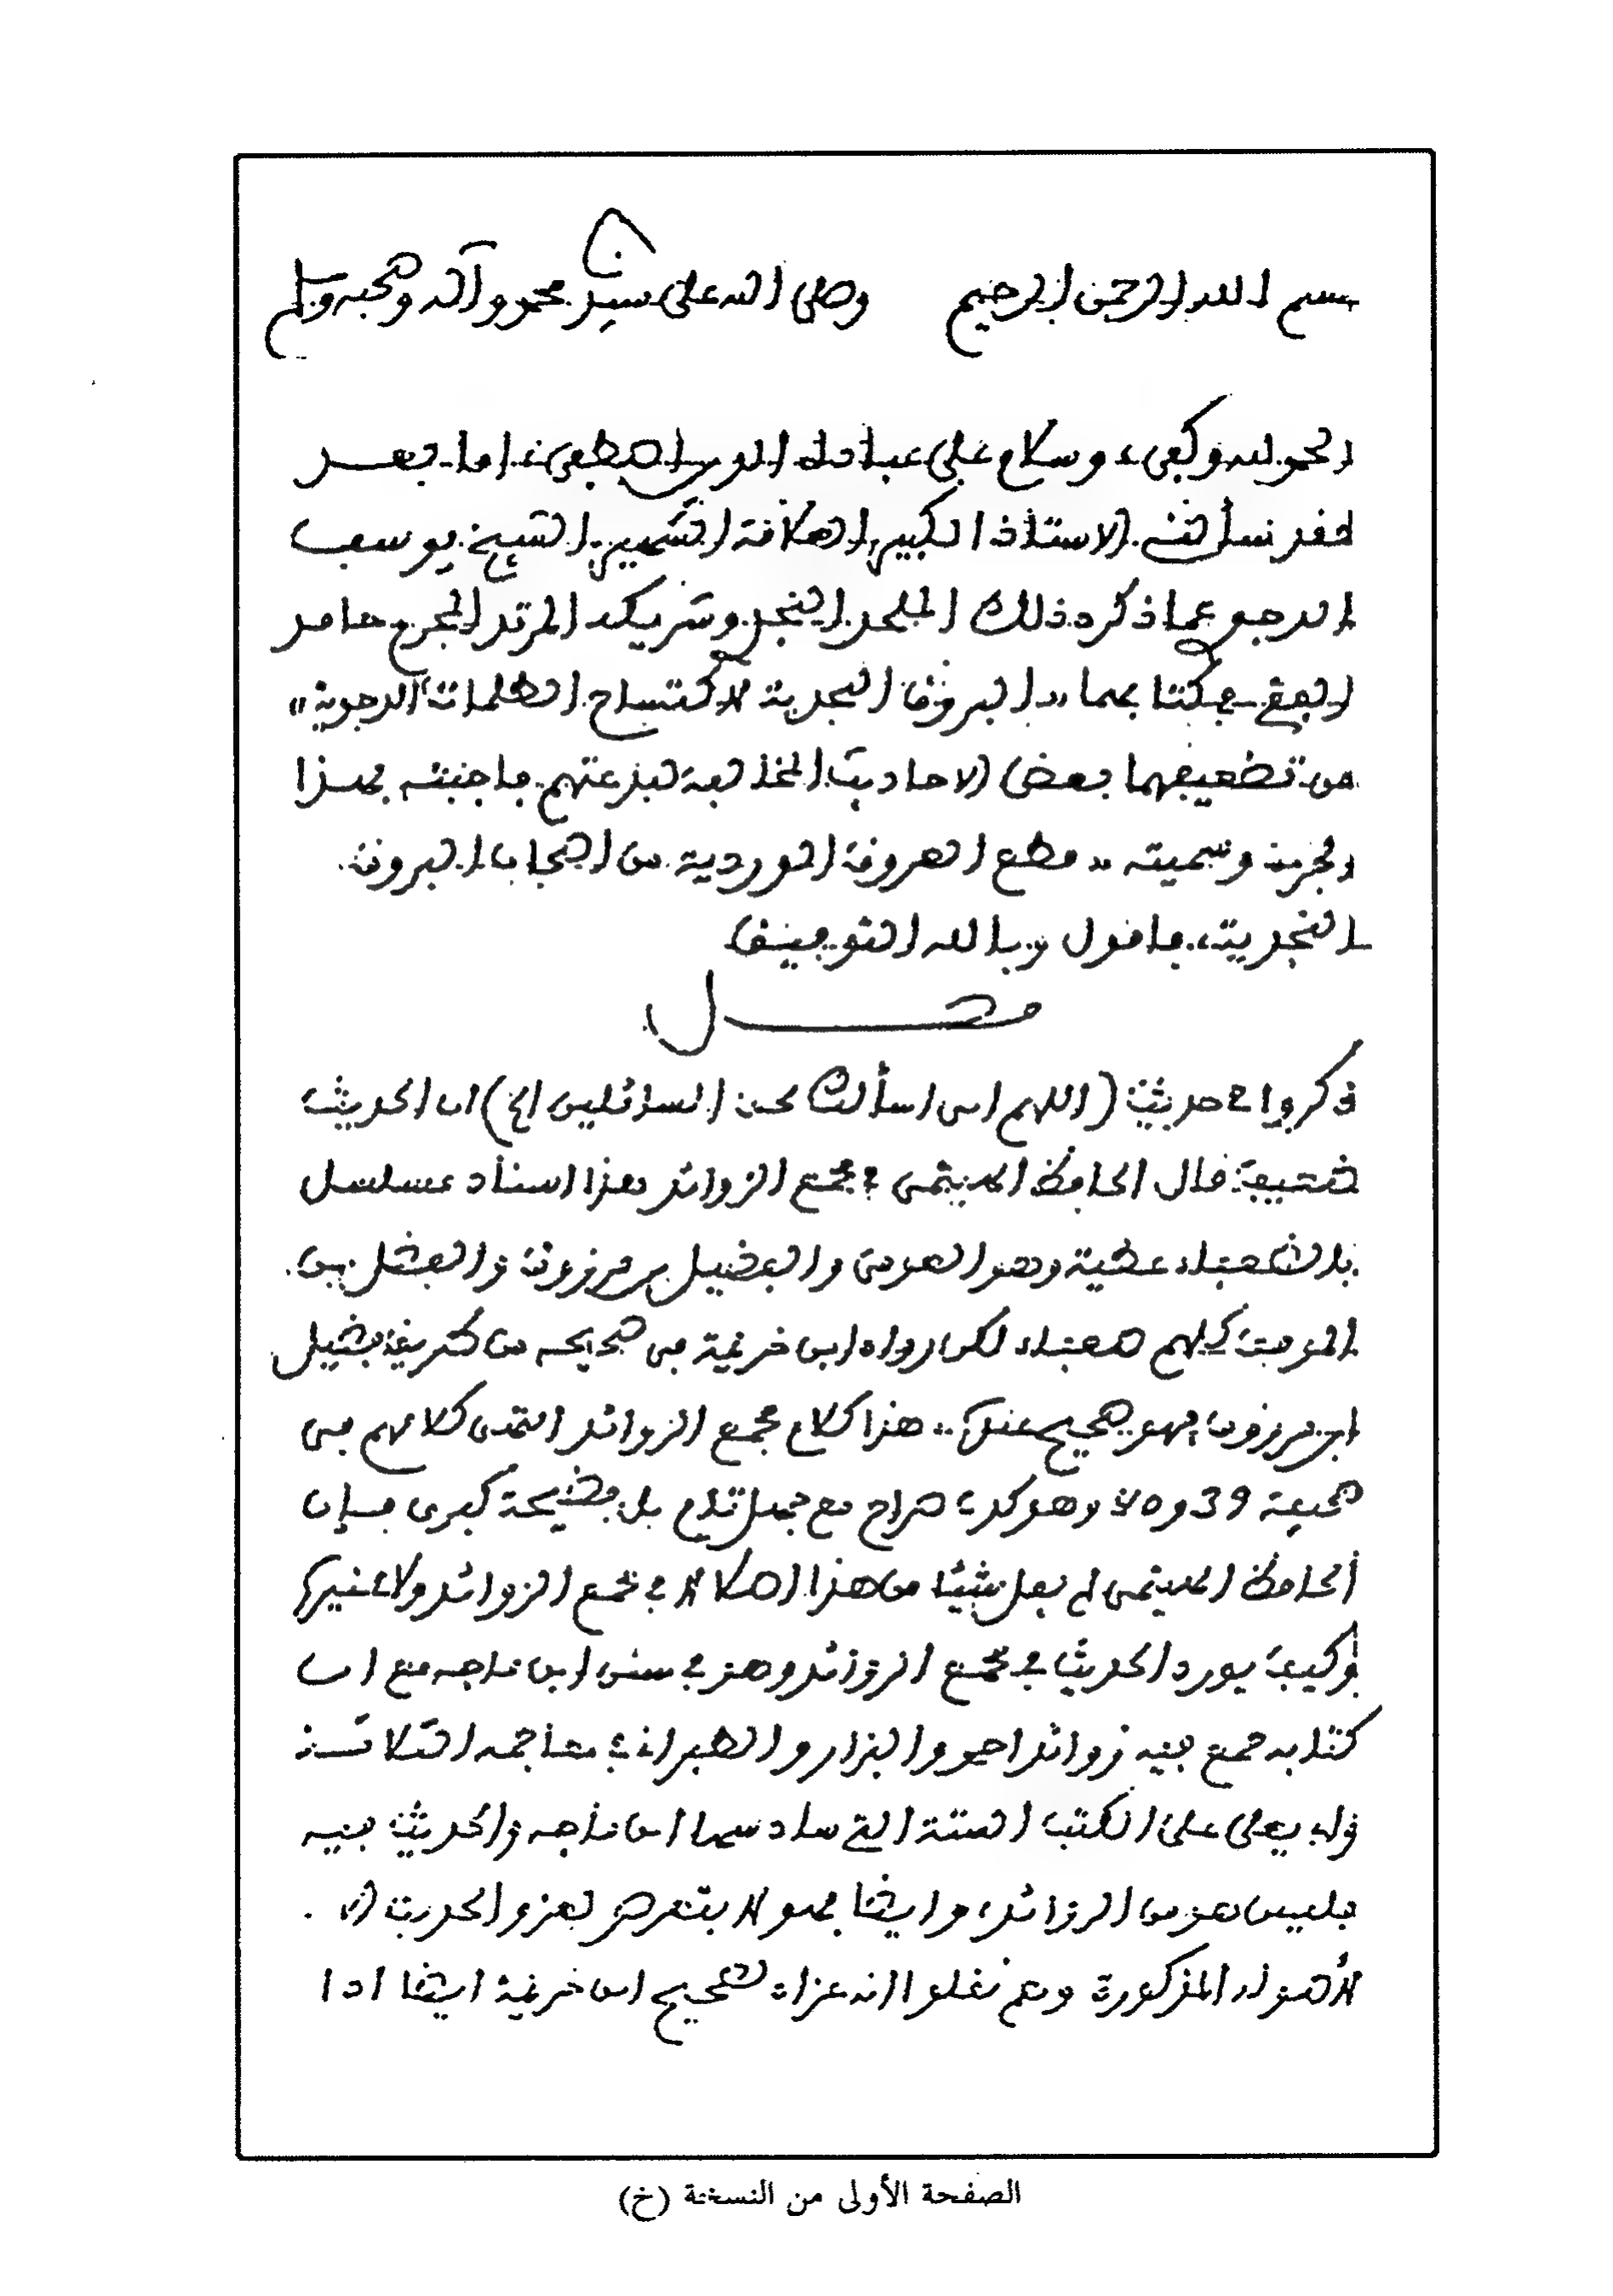 بسم الله الرحمن الرحيم وصلى الله على سيدنا محمد وآله وصحبه وسلم
الحمد لله وكفى، وسلام على عباده الذين اصطفى، اما بعد
فقد سألنى الاستاذ الكبير العلامة الشهير الشيخ يوسف
الدجوى عما ذكره ذلك الملحد النجدى وشريكه المرتد المجرم حامد
الفقى فى كتابهما «البروق النجدية لاكتساح الظلمات الدجوية»
من تضعيفهما بعض الاحاديث المخالفة لنزعتهم فاجبته بهذا
الجزء وسميته «قطع العروق الوردية من اصحاب البروق
النجدية، فاقول وبالله التوفيق
فصل
ذكروا فى حديث (اللهم انى اسألك بحق السائلين الخ) ان الحديث
ضعيف قال الحافظ الهيثمى فى مجمع الزوائد هذا اسناد مسلسل
بالضعفاء عطية وهو العوفى والفضيل بن مرزوق والفضل بن
الموفق كلهم ضعفاء لكن رواه ابن خزيمة فى صحيحه من طريق فضيل
ابن مرزوق فهو صحيح عنده.. هذا كلام مجمع الزوائد انتهى كلامهم فى
صحيفة 39 و 40 وهو كذب صراح مع جهل تام بل فضيحة كبرى فإن
الحافظ الهيثمى لم يقل شيئا من هذا الكلام فى مجمع الزوائد ولا غيره
وكيف يورد الحديث فى مجمع الزوائد وهو فى سنن ابن ماجه مع ان
كتابه جمع فيه زوائد احمد والبزار والطبرانى فى معاجمه الثلاثة
وابى يعلى على الكتب الستة التى سادسها ابن ماجه والحديث فيه
فليس هو من الزوائد، وايضا فهو لا يتعرض لعزو الحديث الا
لاصوله المذكورة وهم نقلوا انه عزاه لصحيح ابن خزيمة ايضا اذا
الصفحة الأولى من النسخة (خ)